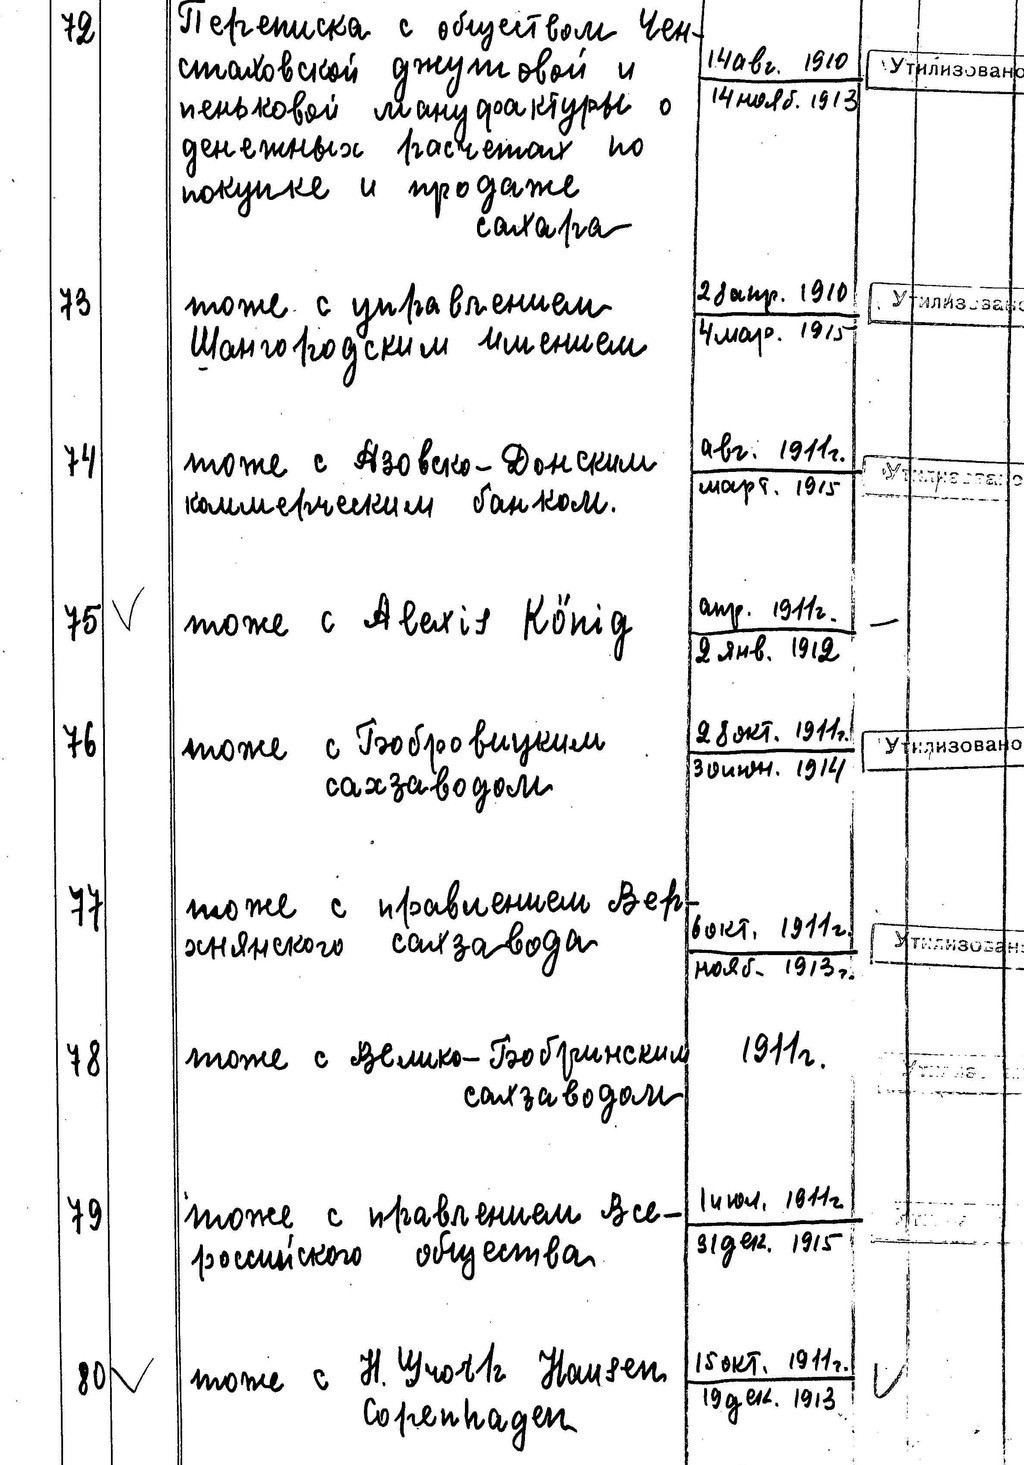 72 Переписка с обществом Чен-
стаховской джутовой и
пеньковой мануфактуры о
денежных расчетах по
покупке и продаже
сахара
14 авг. 1910
14 нояб. 1913
Утилизовано
73 тоже с управлением
Шаргородским имением
28 апр. 1910
4 мар. 1915
Утилизовано
74 тоже с Азовско-Донским
коммерческим банком.
авг. 1911г.
март. 1915
Утилизовано
75 тоже с Alexis König
апр. 1911г.
2 янв. 1912
76 тоже с Бобровицким
сахзаводом
28 окт. 1911г.
30 июн. 1914
Утилизовано
77 тоже с правлением Вер-
хнянского сахзавода
6 окт. 1911г.
нояб. 1913г.
Утилизовано
78 тоже с Велико-Бобринским
сахзаводом
1911г.
79 тоже с правлением Все-
российского общества
1 июл. 1911г
31 дек. 1915
80 тоже с H. Hansen
Copenhagen
15 окт. 1911г.
19 дек. 1913